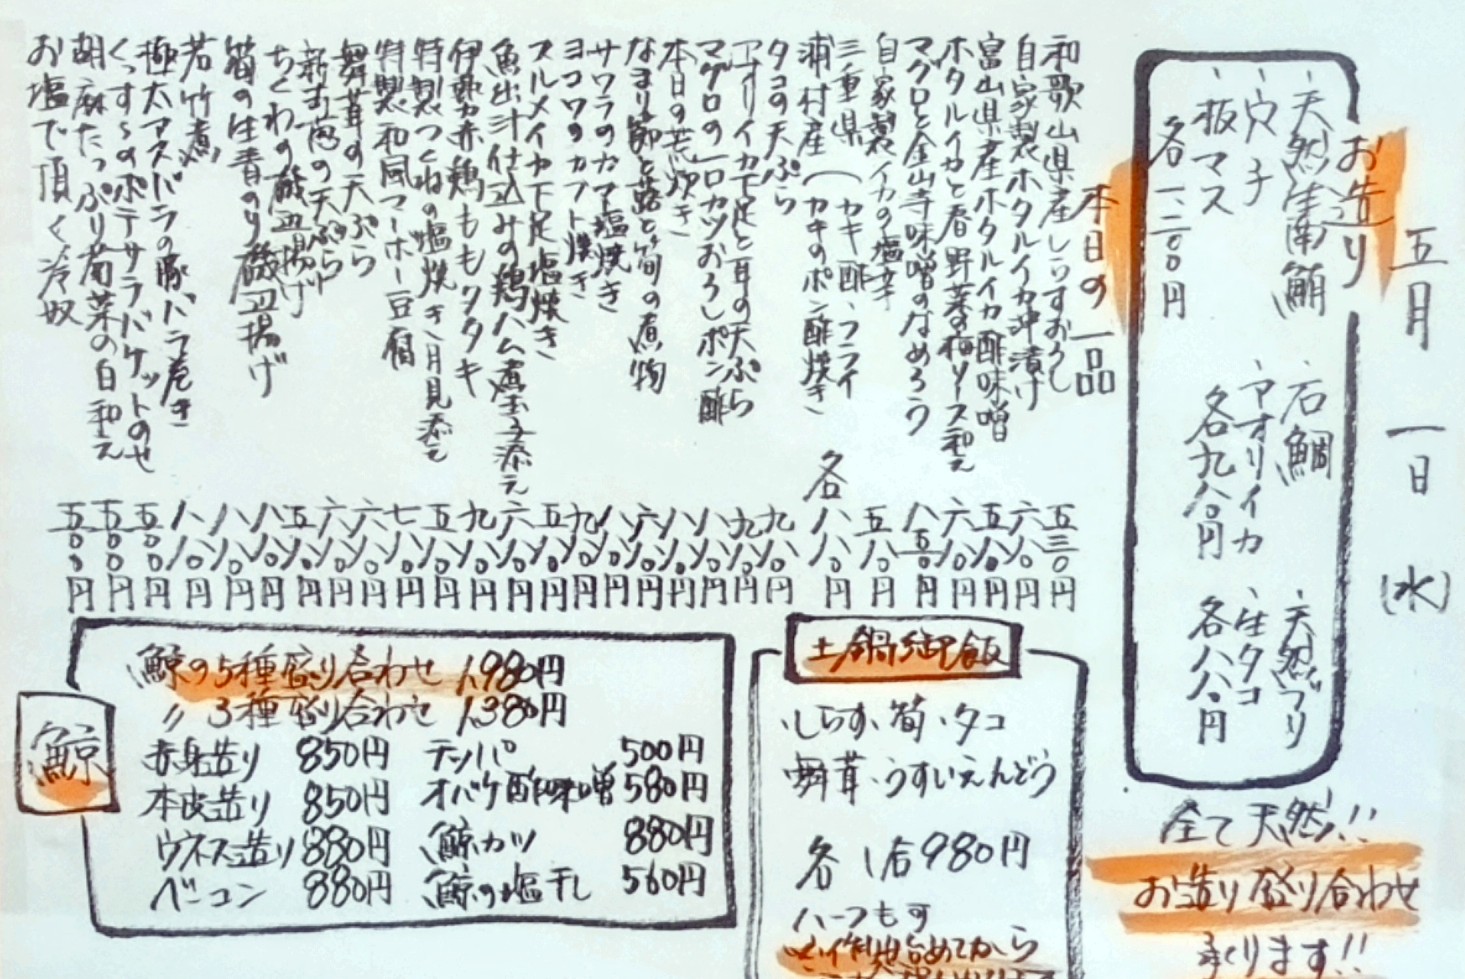 五月 一日 (水)
お造り
・天然生南鮪 ・石鯛 ・天然ブリ
・穴子 ・アオリイカ ・生タコ
・板マス 各九八〇円 各八八〇円
各一、二〇〇円
全て天然!!
お造り盛り合わせ
承ります!!
本日の一品
和歌山県産しらすおろし 五三〇円
自家製ホタルイカ沖漬け 六八〇円
富山県産ホタルイカ酢味噌 五八〇円
ホタルイカと春野菜の梅ソース和え 六八〇円
マグロと金山寺味噌のなめろう 八五〇円
自家製イカの塩辛 五八〇円
三重県 (カキ酢、フライ
浦村産 (カキのポン酢焼き 各八八〇円
タコの天ぷら 九八〇円
アオリイカ下足と耳の天ぷら 九八〇円
マグロの一口カツおろしポン酢 八八〇円
本日の荒炊き 八八〇円
なまり節と蕗と筍の煮物 六八〇円
サワラのカマ塩焼き 八八〇円
ヨコワのカブト焼き 九八〇円
スルメイカ下足塩焼き 五八〇円
魚出汁仕込みの鶏ハム煮玉子添え 六八〇円
伊勢赤鶏ももタタキ 九八〇円
特製つくねの塩焼き月見添え 五八〇円
特製和風マーボー豆腐 七八〇円
舞茸の天ぷら 六八〇円
新玉葱の天ぷら 六八〇円
ちくわの磯辺揚げ 五八〇円
筍の生青のり磯辺揚げ 八八〇円
若竹煮 八八〇円
極太アスパラの豚バラ巻き 八八〇円
くっすんのポテサラバケットのせ 五五〇円
胡麻たっぷり菊菜の白和え 五五〇円
お塩で頂く冷奴 五五〇円
土鍋御飯
・しらす・筍・タコ
・舞茸・うすいえんどう
各 1合980円
ハーフもす
鯨
鯨の5種盛り合わせ 1,980円
〃 3種盛り合わせ 1,380円
赤身造り 850円 テッパ 500円
本皮造り 850円 オバケ酢味噌 580円
ウネス造り 880円 鯨カツ 880円
ベーコン 880円 鯨の塩干し 560円